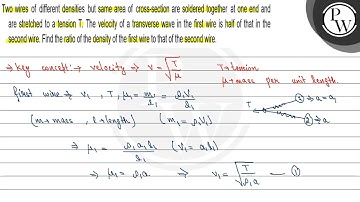 Two wires of different densities but same area of cross-section are soldered together at one end and
are stretched to a tension T. The velocity of a transverse wave in the first wire is half of that in the
second wire. Find the ratio of the density of the first wire to that of the second wire.
PW
→ Key concept:→ velocity ⇒ v = √(T/μ)
T → tension
μ → mass per unit length.
first wire ⇒ v₁, T, μ₁ = m/l₁ = ρ₁V₁/l₁
T ① → a₁ = a
② → a
(m → mass, l → length) (m₁ = ρ₁V₁)
⇒ μ₁ = ρ₁a₁l₁/l₁ (V₁ = a₁l₁)
⇒ μ₁ = ρ₁a ⇒ v₁ = √(T/ρ₁a) — ①